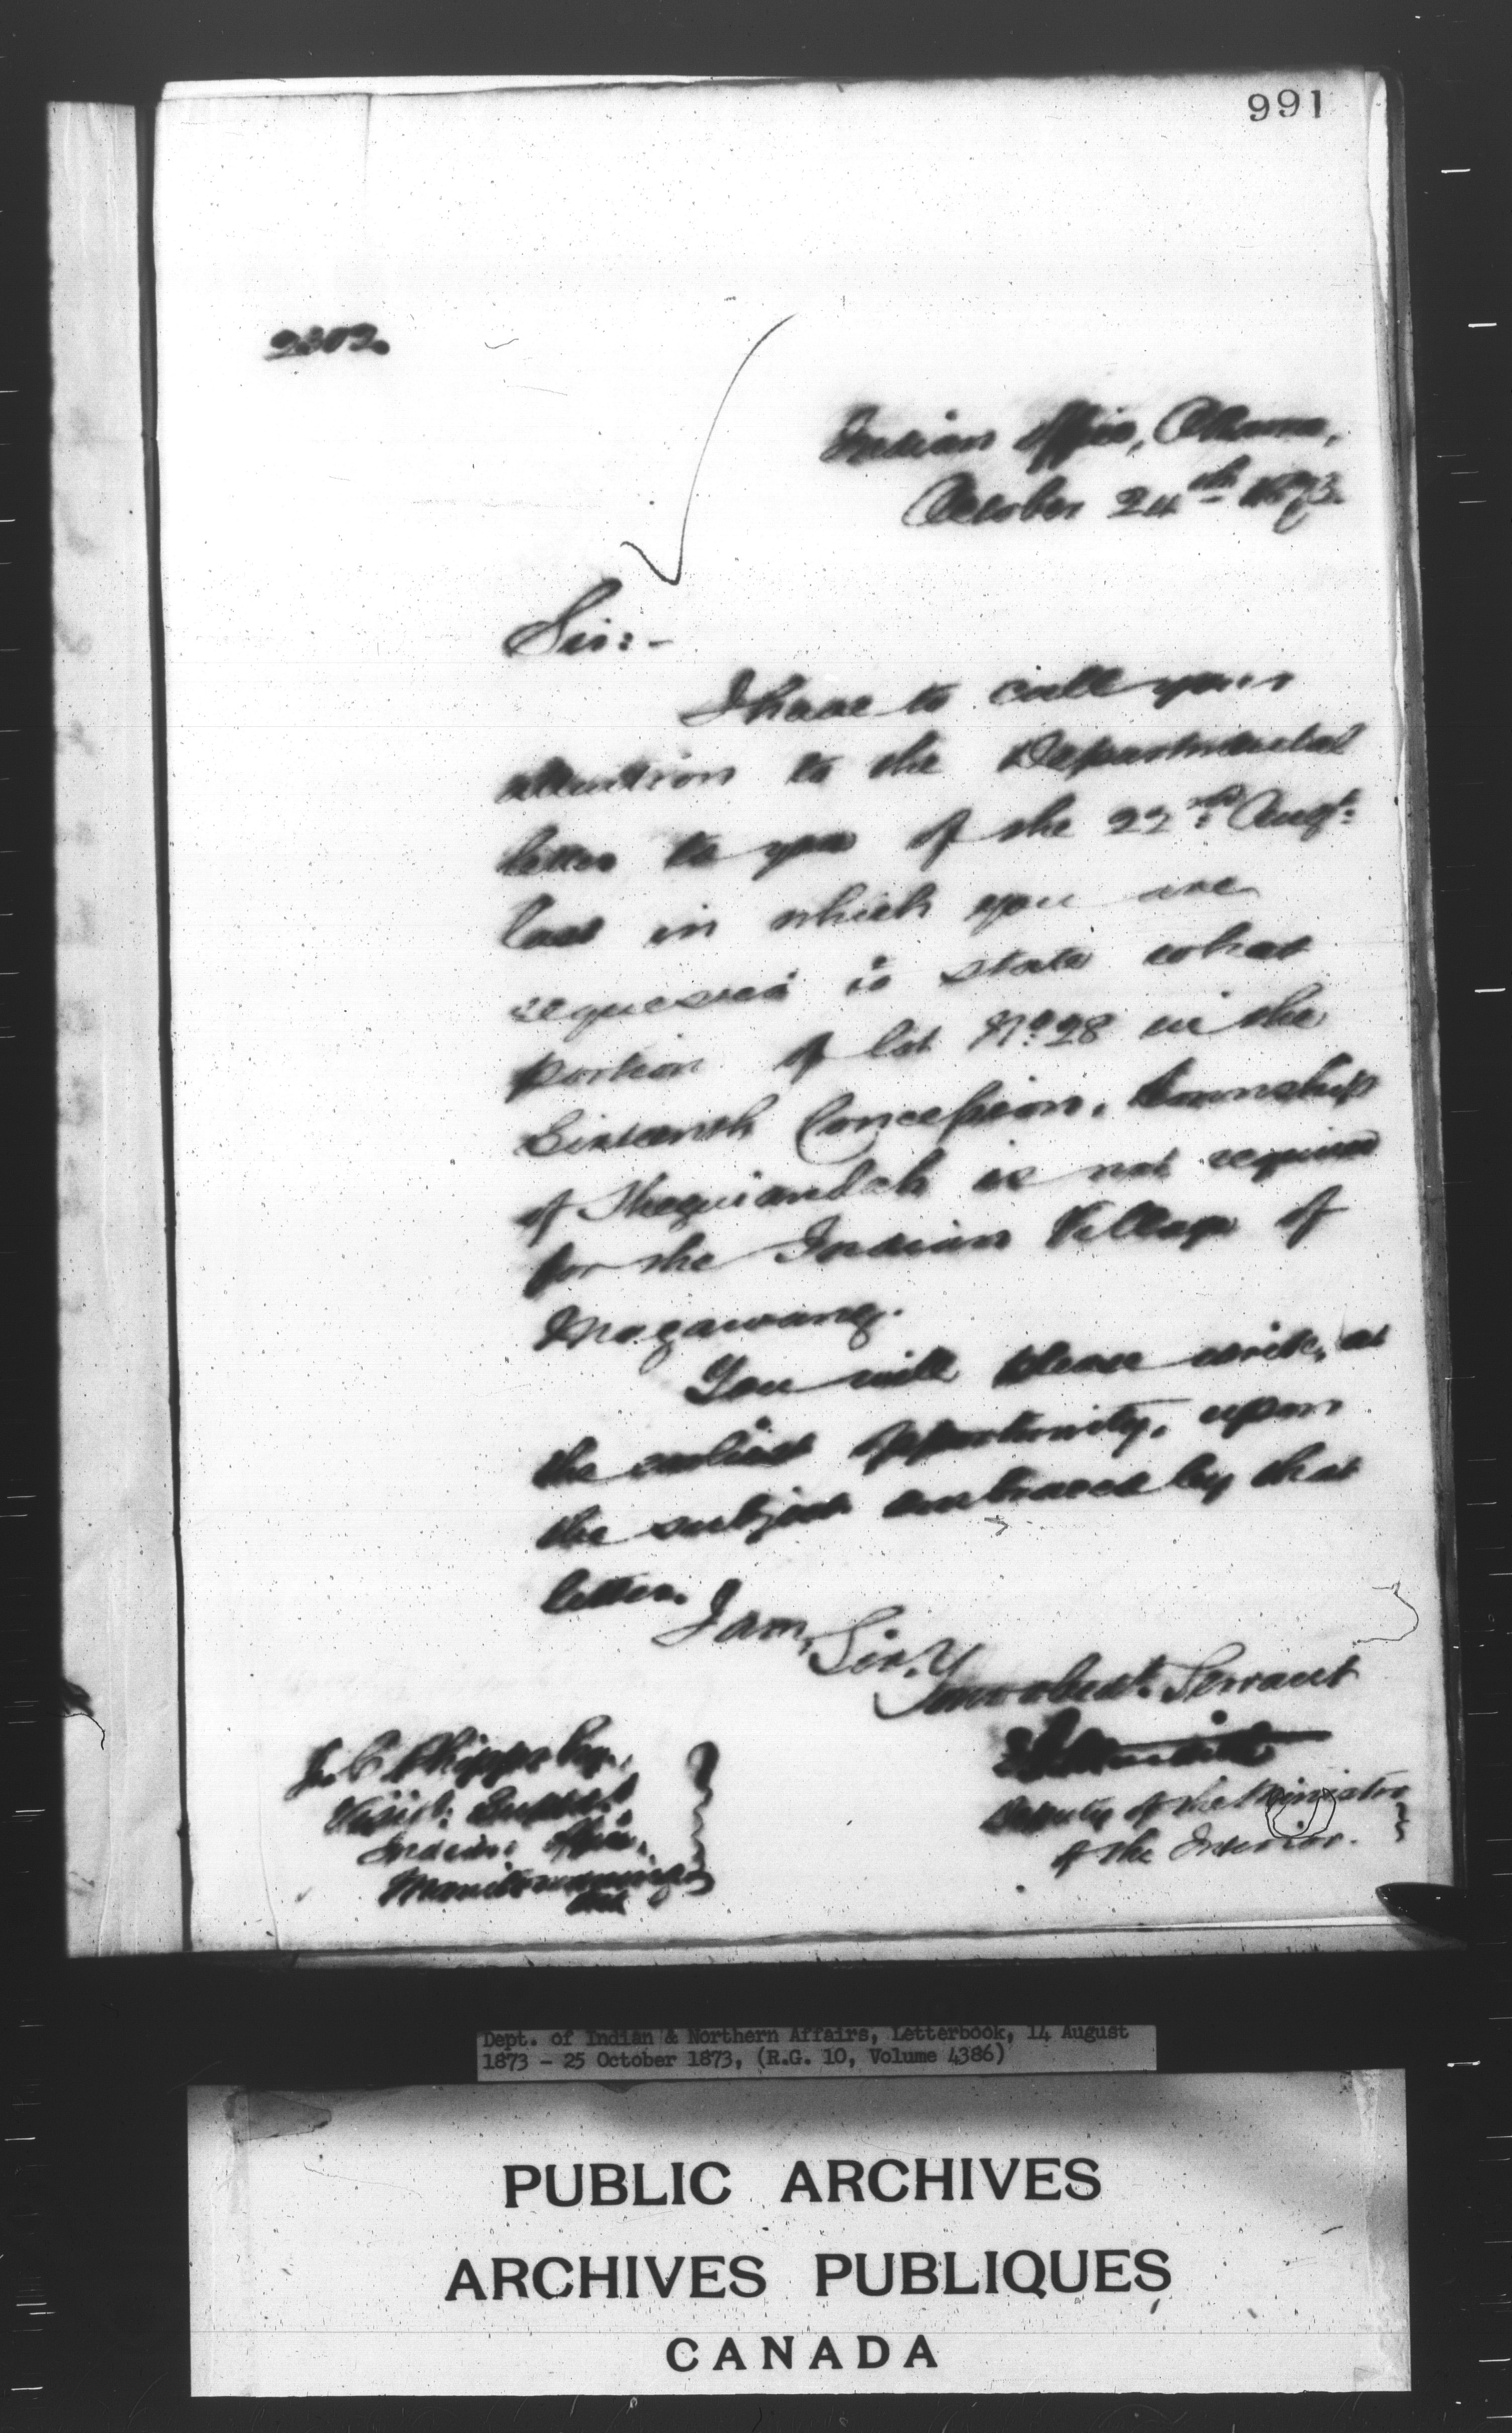 991
2302.
Indian Office, Ottawa,
October 24th 1873.
Sir:-
I have to call your
attention to the Departmental
letter to you of the 22nd Augt:
last in which you are
requested to state what
portion of lot No. 28 in the
Sixteenth Concession, Township
of Sheguiandah is not required
for the Indian Village of
You will please write, at
the earliest opportunity, upon
the subject embraced by that
letter.
I am, Sir,
Your obedt. Servant
Deputy of the Minister
of the Interior.
J. C. Phipps Esq.,
Visit: Supdt.
Indian Office,
Manitowaning
Ont
Dept. of Indian & Northern Affairs, Letterbook, 14 August
1873 - 25 October 1873, (R.G. 10, Volume 4386)
PUBLIC ARCHIVES
ARCHIVES PUBLIQUES
CANADA